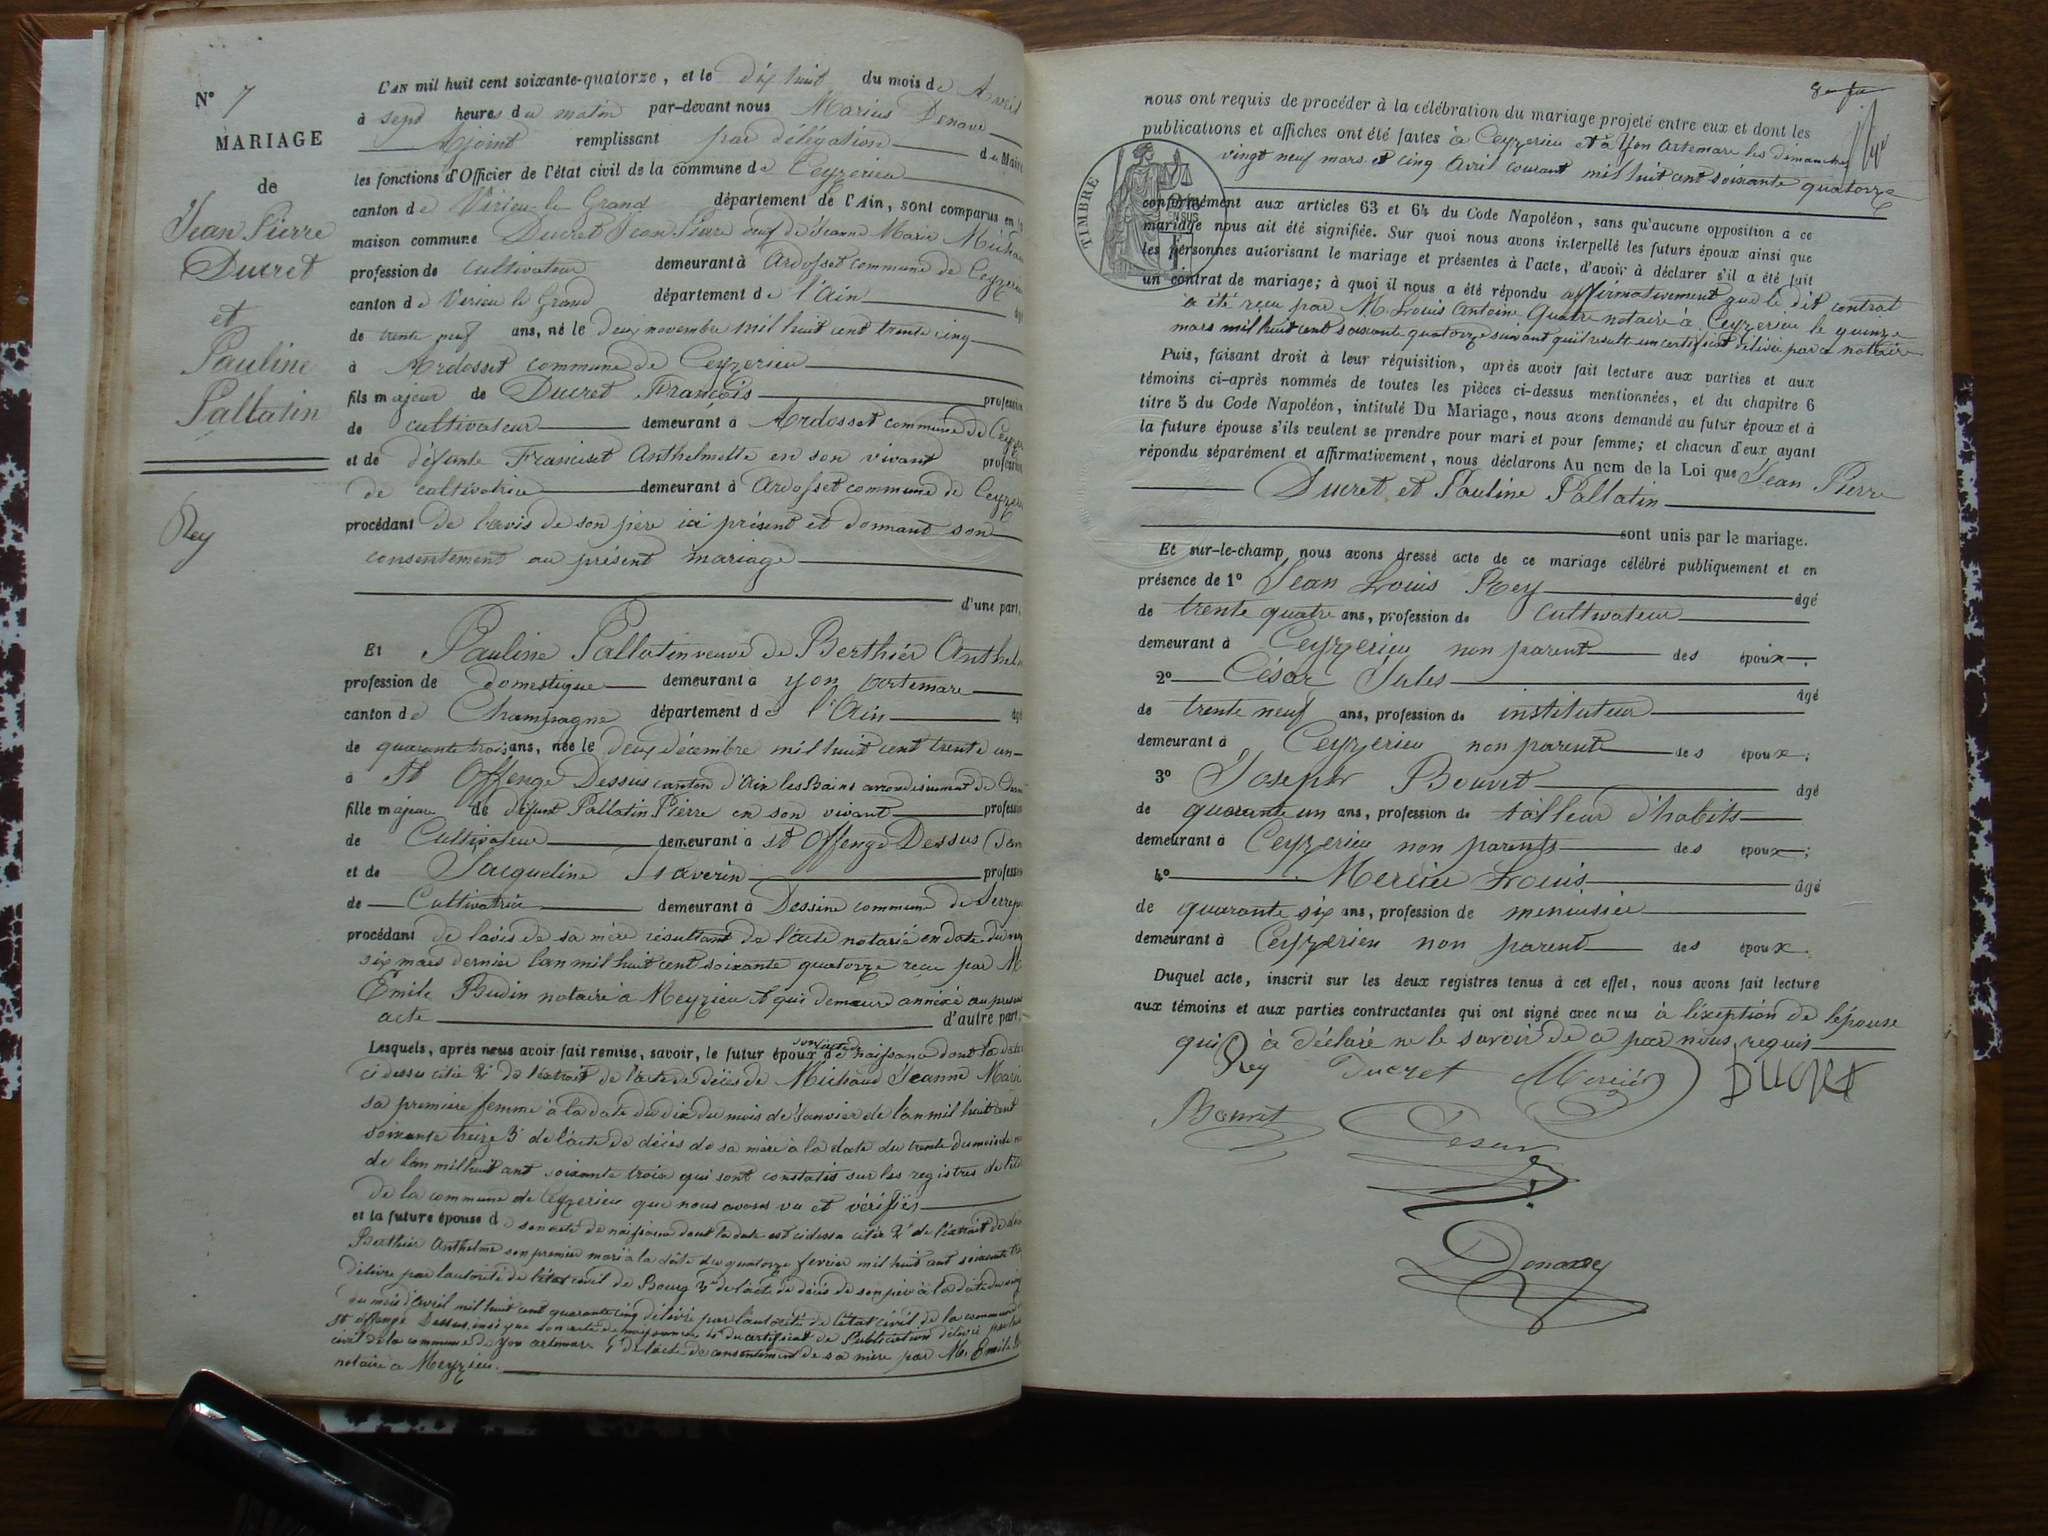 N° 7
MARIAGE
de
Jean Pierre
Ducret
et
Pauline
Pallatin
Rey
L'AN mil huit cent soixante-quatorze, et le dix huit du mois de Avril
à sept heures du matin par-devant nous Marius Denave
Ajoint remplissant par délégation de Maire
les fonctions d'Officier de l'état civil de la commune de Ceyzerieu
canton de Virieu le Grand département de l'Ain, sont comparus en
maison commune Ducret Jean Pierre veuf de Jeanne Marie Michau
profession de cultivateur demeurant à Ardosset commune de Ceyzerieu
canton de Virieu le Grand département de l'Ain âgé
de trente neuf ans, né le deux novembre mil huit cent trente cinq
à Ardosset commune de Ceyzerieu
fils majeur de Ducret François profession
de cultivateur demeurant à Ardosset commune de Ceyze
et de défunte Franciset Anthelmette en son vivant profession
de cultivatrice demeurant à Ardosset commune de Ceyzer
procédant de l'avis de son père ici présent et donnant son
consentement au présent mariage
d'une part,
Et Pauline Pallatin veuve de Berthier Anthel
profession de domestique demeurant à Yon Artemare
canton de Champagne département de l'Ain âgé
de quarante trois ans, née le deux décembre mil huit cent trente un
à St Offenge Dessus canton d'Aix les Bains arrondissement de Cham
fille majeure de défunt Pallatin Pierre en son vivant profession
de Cultivateur demeurant à St Offenge Dessus
et de Jacqueline profession
de Cultivatrice demeurant à Dessine commune de
procédant de l'avis de sa mère résultant de l'acte notarié en date du
six mars dernier l'an mil huit cent soixante quatorze reçu par M
Emile Budin notaire à Meyzieu et qui demeure annéxé au présent
acte d'autre part,
Lesquels, après nous avoir fait remise, savoir, le futur époux de son acte de naissance dont la date
ci dessus citée 2° de l'extrait de l'acte de décès de Michaud Jeanne Marie
sa première femme à la date du dix du mois de Janvier de l'an mil huit cent
soixante treize 3° de l'acte de décès de sa mère à la date du trente du mois de
de l'an mil huit cent soixante trois qui sont constatés sur les registres de
de la commune de Ceyzerieu que nous avons vu et vérifiés
et la future épouse de son acte de naissance dont la date est ci dessus citée 2° de l'extrait de
Berthier Anthelme son premier mari à la date du quatorze fevrier mil huit cent soixante
délivré par l'autorité de l'état civil de Bourg 3° de l'acte de décès de son père à la date du cinq
du mois d'avril mil huit cent quarante cinq délivré par l'autorité de l'état civil de la commune
St Offenge Dessus, ainsi que son acte de naissance 4° du certificat de Publication délivré par
civil de la commune de Yon artemare 5° de l'acte de consentement de sa mère par M. Emile
notaire à Meyzieu.
nous ont requis de procéder à la célébration du mariage projeté entre eux et dont les
publications et affiches ont été faites à Ceyzerieu et à Yon Artemare les dimanches
vingt neuf mars et cinq Avril courant mil huit cent soixante quatorze
TIMBRE
conformément aux articles 63 et 64 du Code Napoléon, sans qu'aucune opposition à ce
mariage nous ait été signifiée. Sur quoi nous avons interpellé les futurs époux ainsi que
les personnes autorisant le mariage et présentes à l'acte, d'avoir à déclarer s'il a été fait
un contrat de mariage; à quoi il nous a été répondu affirmativement que le dit contrat
a été reçu par M. Louis Antoine Quatre notaire à Ceyzerieu le quinze
mars mil huit cent soixante quatorze suivant qu'il résulte un certificat délivré par ce notaire
Puis, faisant droit à leur réquisition, après avoir fait lecture aux parties et aux
témoins ci-après nommés de toutes les pièces ci-dessus mentionnées, et du chapitre 6
titre 5 du Code Napoléon, intitulé Du Mariage, nous avons demandé au futur époux et à
la future épouse s'ils veulent se prendre pour mari et pour femme; et chacun d'eux ayant
répondu séparément et affirmativement, nous déclarons Au nom de la Loi que Jean Pierre
Ducret et Pauline Pallatin
sont unis par le mariage.
Et sur-le-champ nous avons dressé acte de ce mariage célébré publiquement et en
présence de 1° Jean Louis Rey âgé
de trente quatre ans, profession de Cultivateur
demeurant à Ceyzerieu non parent des époux.
2° César Jules âgé
de trente neuf ans, profession de instituteur
demeurant à Ceyzerieu non parent des époux;
3° Joseph Bouvet âgé
de quarante un ans, profession de tailleur d'habits
demeurant à Ceyzerieu non parents des époux;
4° Mercier Louis âgé
de quarante six ans, profession de menuisier
demeurant à Ceyzerieu non parent des époux.
Duquel acte, inscrit sur les deux registres tenus à cet effet, nous avons fait lecture
aux témoins et aux parties contractantes qui ont signé avec nous à l'éxeption de l'épouse
qui à déclaré ne le savoir de ce par nous requis
Rey Ducret Mercier DUCRET
Bouvet Cesar
Denave